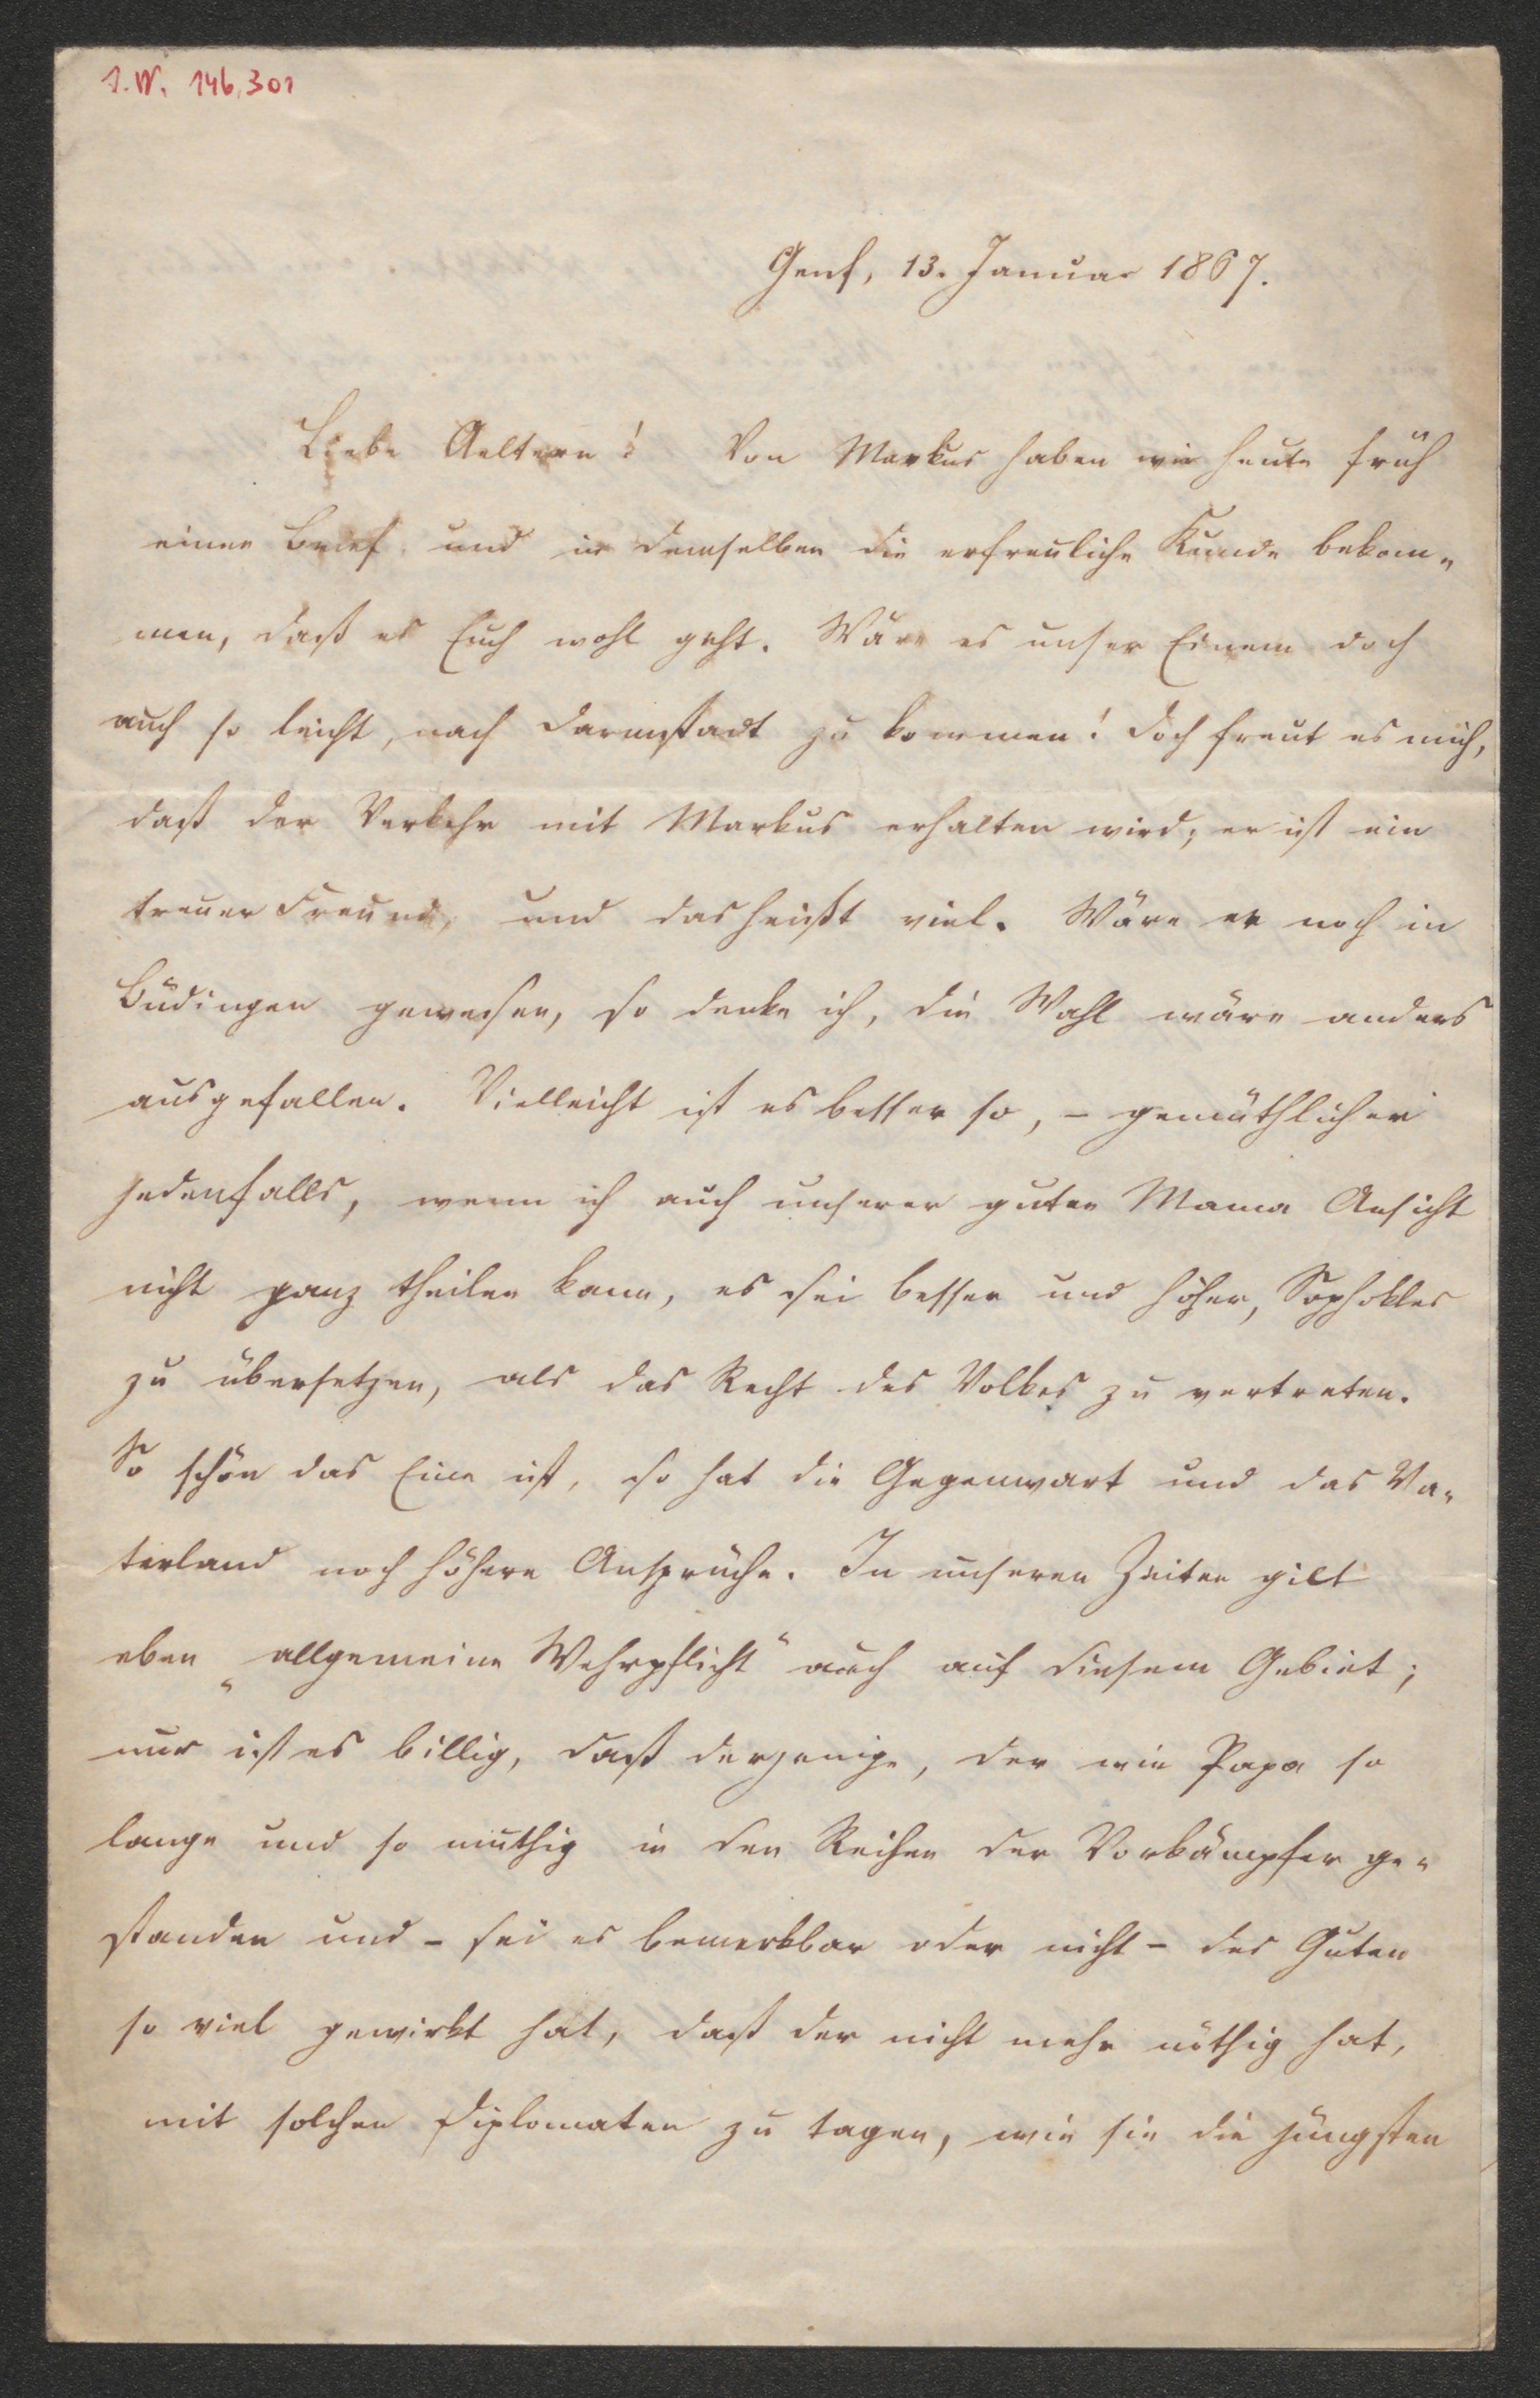 I.N. 146,301
Genf, 13. Januar 1867.
Liebe Aeltern! Von Markus haben wir heute früh
einen Brief und in demselben die erfreuliche Kunde bekom-
men, daß es Euch wohl geht. Wäre es unser Einem doch
auch so leicht, nach Darmstadt zu kommen! Doch freut es mich,
daß der Verkehr mit Markus erhalten wird; er ist ein
treuer Freund, und das heißt viel. Wäre er noch in
Büdingen gewesen, so denke ich, die Wahl wäre anders
ausgefallen. Vielleicht ist es besser so, – gemüthlicher
jedenfalls, wenn ich auch unserer guten Mama Ansicht
nicht ganz theilen kann, es sei besser und höher, Sophokles
zu übersetzen, als das Recht des Volkes zu vertreten.
So schön das Eine ist, so hat die Gegenwart und das Va-
terland noch höhere Ansprüche. In unseren Zeiten gilt
eben „allgemeine Wehrpflicht“ auch auf diesem Gebiet;
nur ist es billig, daß derjenige, der wie Papa so
lange und so muthig in den Reihen der Vorkämpfer ge-
standen und – sei es bemerkbar oder nicht – des Guten
so viel gewirkt hat, daß der nicht mehr nöthig hat,
mit solchen Diplomaten zu tagen, wie sie die jüngsten